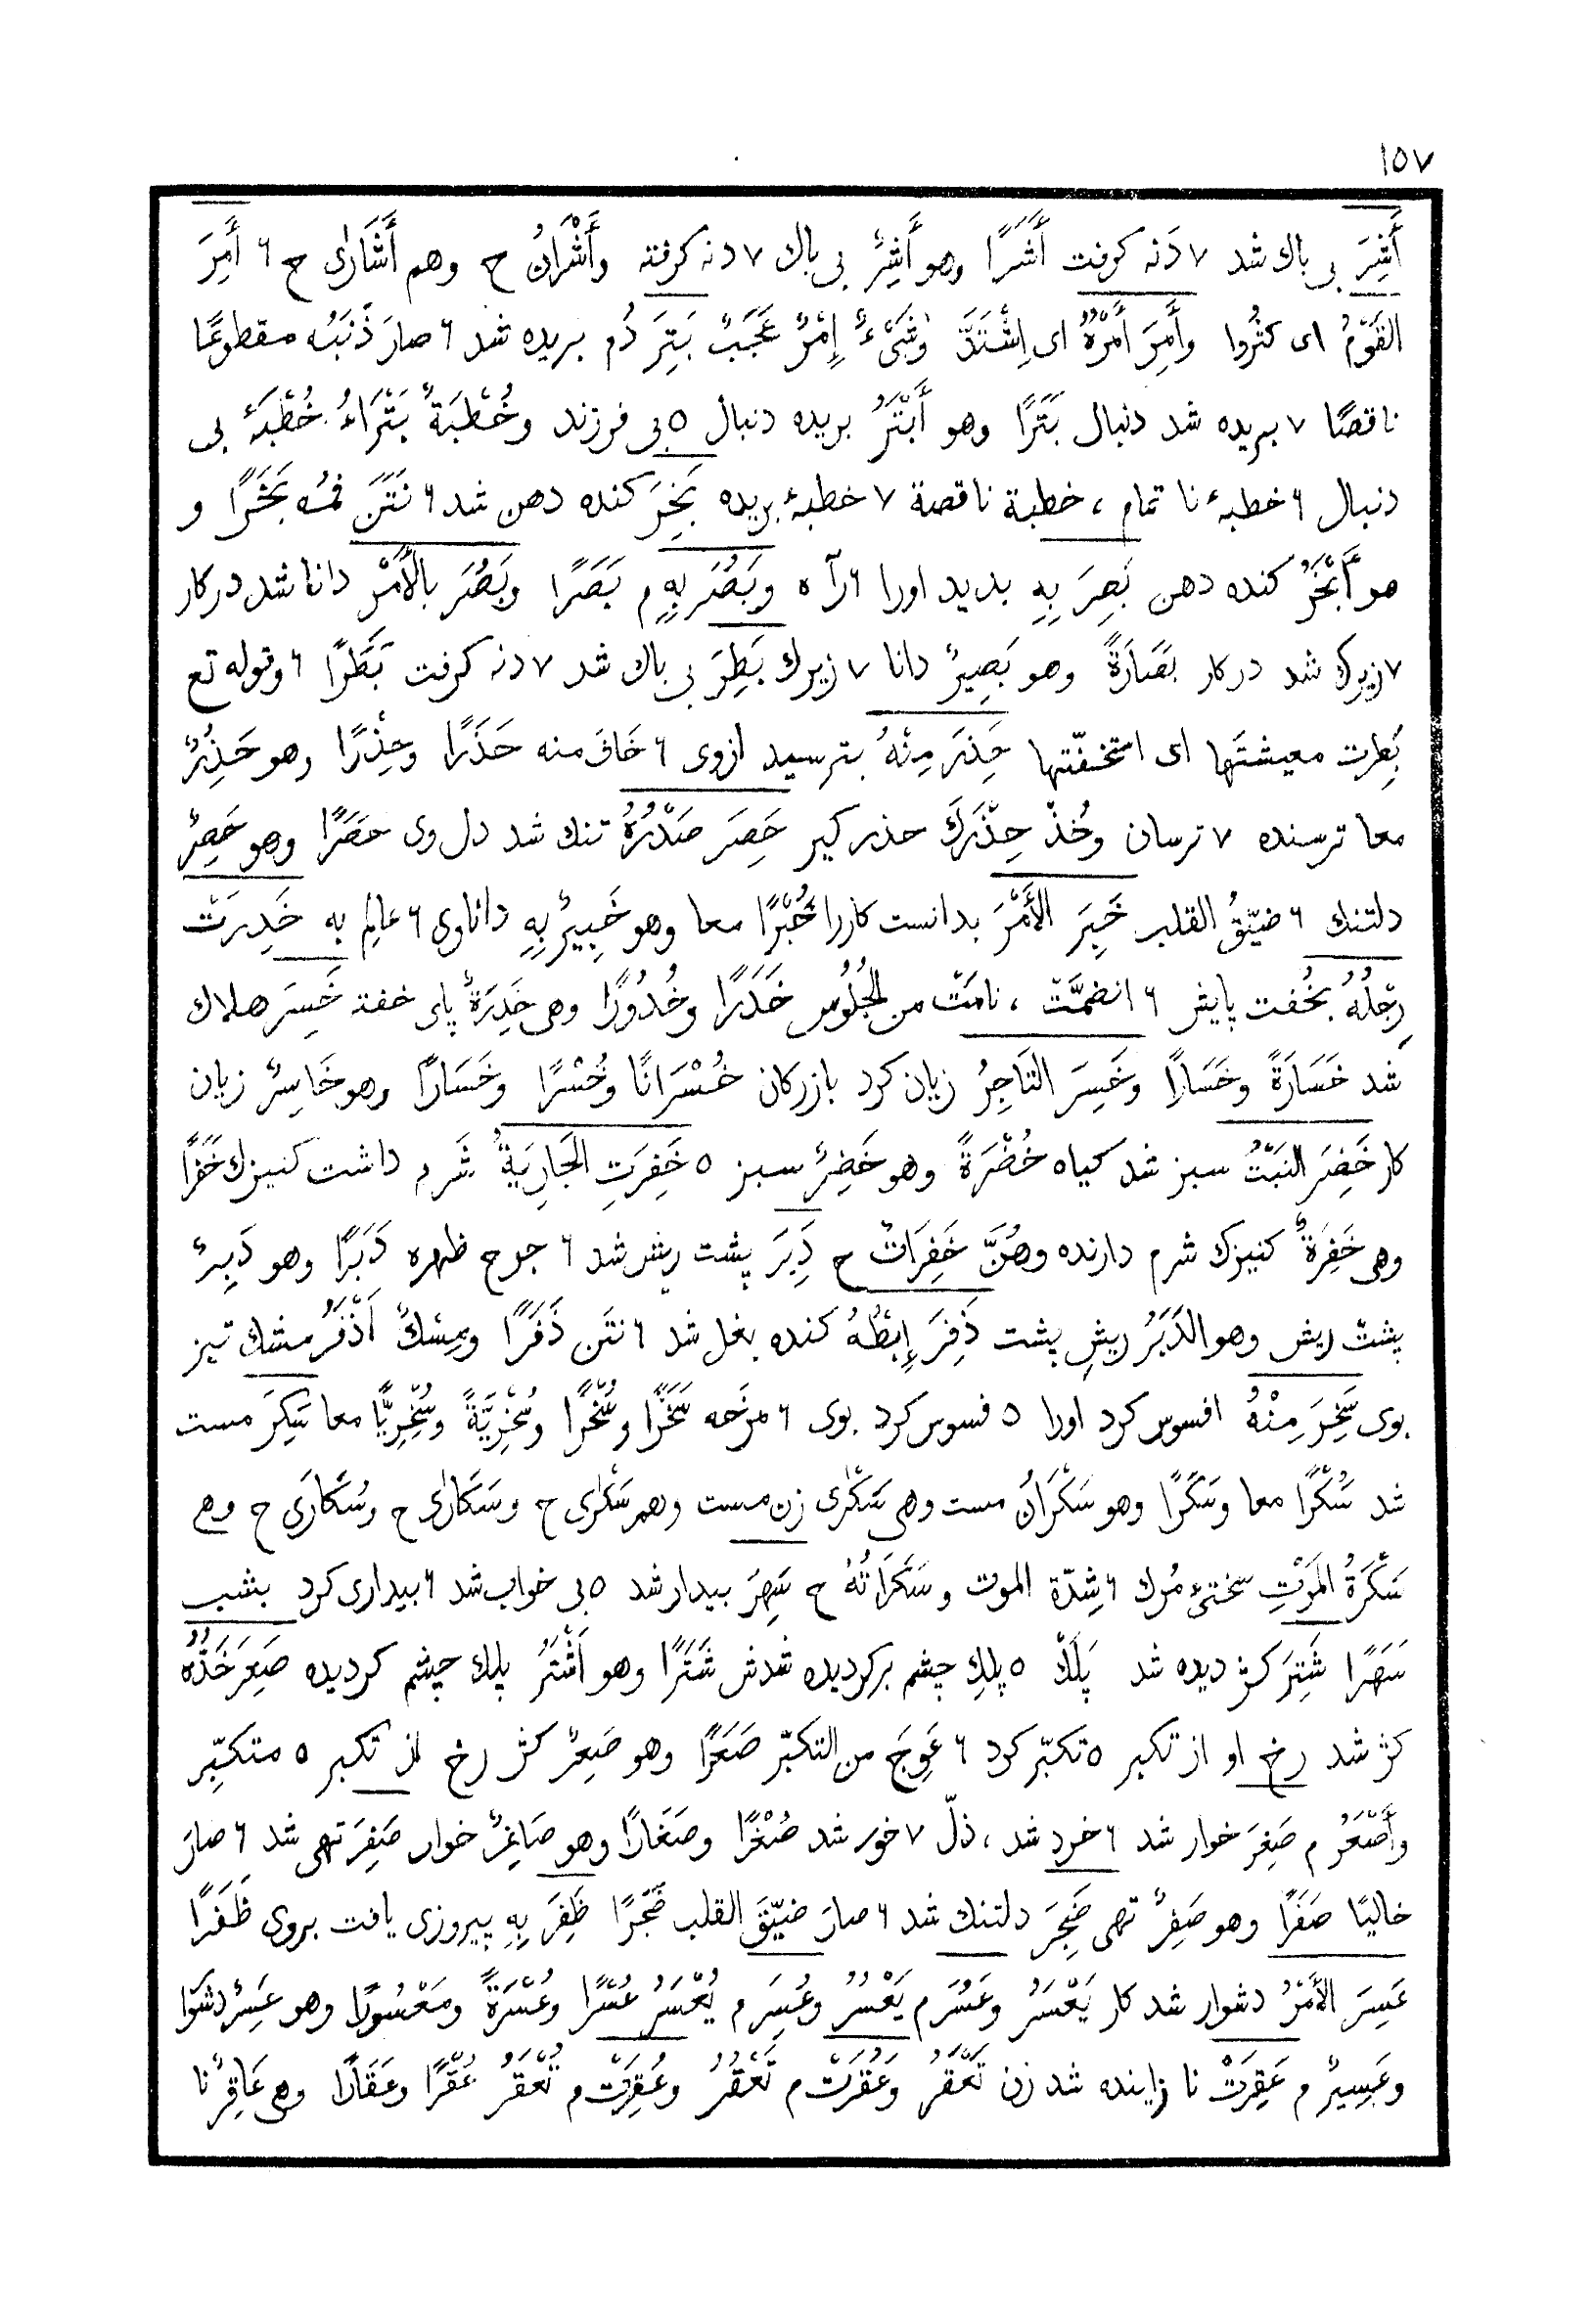 ١٥٧
أَشِرَ بی باك شد ٧ دَنه كرفت أَشَرًا وهو أَشِرٌ بی باك ٧ دنه كرفته وأَشْرَانُ ح وهم أَشَارٰى ح ٦ أَمِرَ
القَوْمُ اى كثُروا وأَمِرَ أَمْرُهُ اى اِشْتَدَّ وشَىْءٌ إِمْرٌ عَجَبٌ بَتِرَ دُم بریده شد ٦ صارَ ذَنَبُه مقطوعًا
ناقصًا ٧ بریده شد دنبال بَتَرًا وهو أَبْتَرُ بریده دنبال ٥ بی فرزند وخُطْبَةٌ بَتْرَاءُ خُطْبَهٔ بی
دنبال ٦ خطبهٔ نا تمام ، خطبة ناقصة ٧ خطبهٔ بریده بَخِرَ كنده دهن شد ٦ نَتَنَ فمُه بَخَرًا و
هو أَبْخَرُ كنده دهن بَصِرَ بِهِ بدید اورا ٦ رآه وبَصُرَ بِهِ م بَصَرًا وبَصُرَ بالأَمْرِ دانا شد در كار
٧ زیرك شد در كار بَصَارَةً وهو بَصِيرٌ دانا ٧ زیرك بَطِرَ بی باك شد ٧ دنه كرفت بَطَرًا ٦ وقوله تع
بَطِرت معيشتَها اى استخفّتها حَذِرَ مِنْهُ بترسید ازوی ٦ خَافَ منه حَذَرًا وحِذْرًا وهو حَذِرٌ
معا ترسنده ٧ ترسان وخُذْ حِذْرَكَ حذر كیر حَصِرَ صَدْرُهُ تنك شد دل وی حَصَرًا وهو حَصِرٌ
دلتنك ٦ ضيّقُ القلب خَبِرَ الأَمْرَ بدانست كاررا خُبْرًا معا وهو خَبِيرٌ بِهِ داناوی ٦ عالِم به خَدِرَتْ
رِجْلُهُ بخُفت پایش ٦ انضمَّتْ ، نامَتْ من الجُلُوس خَدَرًا وخُدُورًا وهى خَدِرَةٌ پای خفته خَسِرَ هلاك
شد خَسَارَةً وخَسَارًا وخَسِرَ التَاجِرُ زیان كرد بازركان خُسْرَانًا وخُسْرًا وخَسَارًا وهو خَاسِرٌ زیان
كار خَضِرَ النَبْتُ سبز شد كیاه خُضْرَةً وهو خَضِرٌ سبز ٥ خَفِرَتِ الجَارِيَةُ شَرم داشت كنیزك خَفَرًا
وهى خَفِرَةٌ كنیزك شرم دارنده وهُنَّ خَفِرَاتٌ ح دَبِرَ پشت ریش شد ٦ جرح ظهره دَبَرًا وهو دَبِرٌ
پشت ریش وهو الدَبَرُ ریشِ پشت ذَفِرَ إِبْطُهُ كنده بغل شد ٦ نَتَن ذَفَرًا ومِسْكٌ اَذْفَرُ مشك تیز
بوی سَخِرَ مِنْهُ افسوس كرد اورا ٥ فسوس كرد بوی ٦ مزحه سَخَرًا وسُخْرًا وسُخْرِيَّةً وسُخْرِيًّا معا سَكِرَ مست
شد سُكْرًا معا وسَكَرًا وهو سَكْرَانُ مست وهى سَكْرٰى زن مست وهم سَكْرٰى ح وسَكَارٰى ح وسُكَارَى ح وهى
سَكْرَةُ المَوْتِ سختیٔ مُرك ٦ شِدّة الموت وسَكَرَاتُهُ ح سَهِرَ بیدار شد ٥ بی خواب شد ٦ بیداری كرد بشب
سَهَرًا شَتِرَ كژ دیده شد پَلَكْ ٥ پلكِ چشم بركردیده شدش شَتَرًا وهو اَشْتَرُ پلك چشم كردیده صَعِرَ خَدُّهُ
كژ شد رخ او از تكبر ٥ تكبّر كرد ٦ عَوِجَ من التكبّر صَعَرًا وهو صَعِرٌ كژ رخ از تكبر ٥ متكبِّر
وأَصْعَرُ م صَغِرَ خوار شد ٦ خرد شد ، ذلّ ٧ خور شد صُغْرًا وصَغَارًا وهو صَاغِرٌ خوار صَفِرَ تهی شد ٦ صارَ
خاليًا صَفَرًا وهو صَفِرٌ تهی ضَجِرَ دلتنك شد ٦ صارَ ضيّقَ القلب ضَجَرًا ظَفِرَ بِهِ پیروزی یافت بروی ظَفَرًا
عَسِرَ الأَمْرُ دشوار شد كار يَعْسَرُ وعَسُرَ م يَعْسُرُ وعُسِرَ م يُعْسَرُ عُسْرًا وعُسْرَةً ومَعْسُورًا وهو عَسِرٌ دشوا
وعَسِيرٌ م عَقِرَتْ نا زاینده شد زن تَعْقَرُ وعَقُرَتْ م تَعْقُرُ وعُقِرَتْ م تُعْقَرُ عُقْرًا وعَقَارًا وهى عَاقِرٌ نا